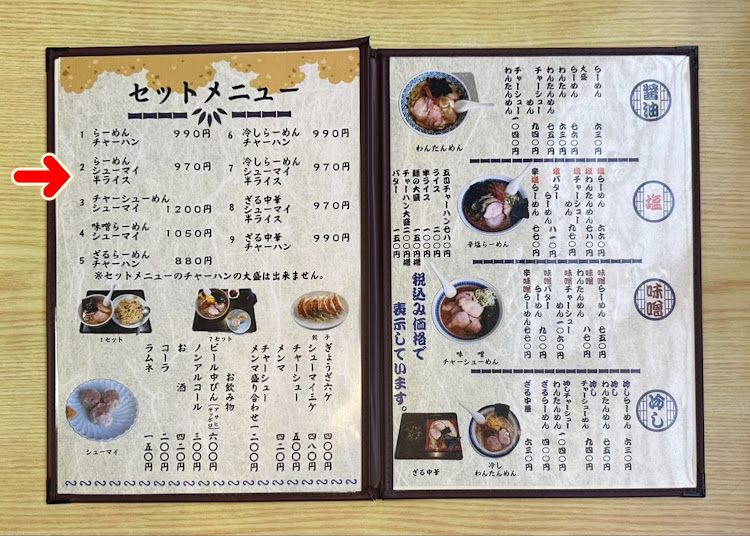 セットメニュー
1 らーめん 990円
チャーハン
2 らーめん 970円
シューマイ
半ライス
3 チャーシューめん
シューマイ 1200円
4 味噌らーめん 1050円
シューマイ
5 ざるらーめん 880円
チャーハン
6 冷しらーめん 990円
チャーハン
7 冷しらーめん 970円
シューマイ
半ライス
8 ざる中華 970円
シューマイ
半ライス
9 ざる中華 990円
チャーハン
※セットメニューのチャーハンの大盛は出来ません。
1セット
7セット
餃子
シューマイ
ぎょうざ六ケ 四〇〇円
シューマイ三ケ 四八〇円
チャーシュー 五〇〇円
メンマ 四二〇円
チャーシュー
メンマ盛り合わせ 一二〇〇円
お飲み物
ビール中びん(アサヒ サッポロ) 六〇〇円
ノンアルコール 三〇〇円
お酒 四二〇円
コーラ 二〇〇円
ラムネ 一五〇円
醤油
らーめん 六三〇円
大盛
らーめん 六七〇円
わんたん
チャーシュー
めん 九四〇円
チャーシュー
わんたんめん 一〇四〇円
わんたんめん
塩
塩らーめん 六六〇円
塩わんたんめん 七八〇円
塩チャーシュー
めん
塩バター
らーめん 八一〇円
辛塩らーめん 七七〇円
辛塩らーめん
チャーハン 七八〇円
ライス 二〇〇円
半ライス 一五〇円
麺の大盛
チャーハン大盛
バター 一五〇円
味噌
味噌らーめん 七五〇円
味噌
わんたんめん 八七〇円
味噌チャーシュー
めん
味噌バター
らーめん 九〇〇円
辛味噌らーめん
味噌
チャーシューめん
税込み価格で
表示しています。
冷し
冷しらーめん 六三〇円
冷し
わんたんめん 七五〇円
冷し
チャーシューめん 九四〇円
冷しチャーシュー
わんたんめん 一〇四〇円
ざるらーめん
ざる中華 六三〇円
ざる中華
冷し
わんたんめん